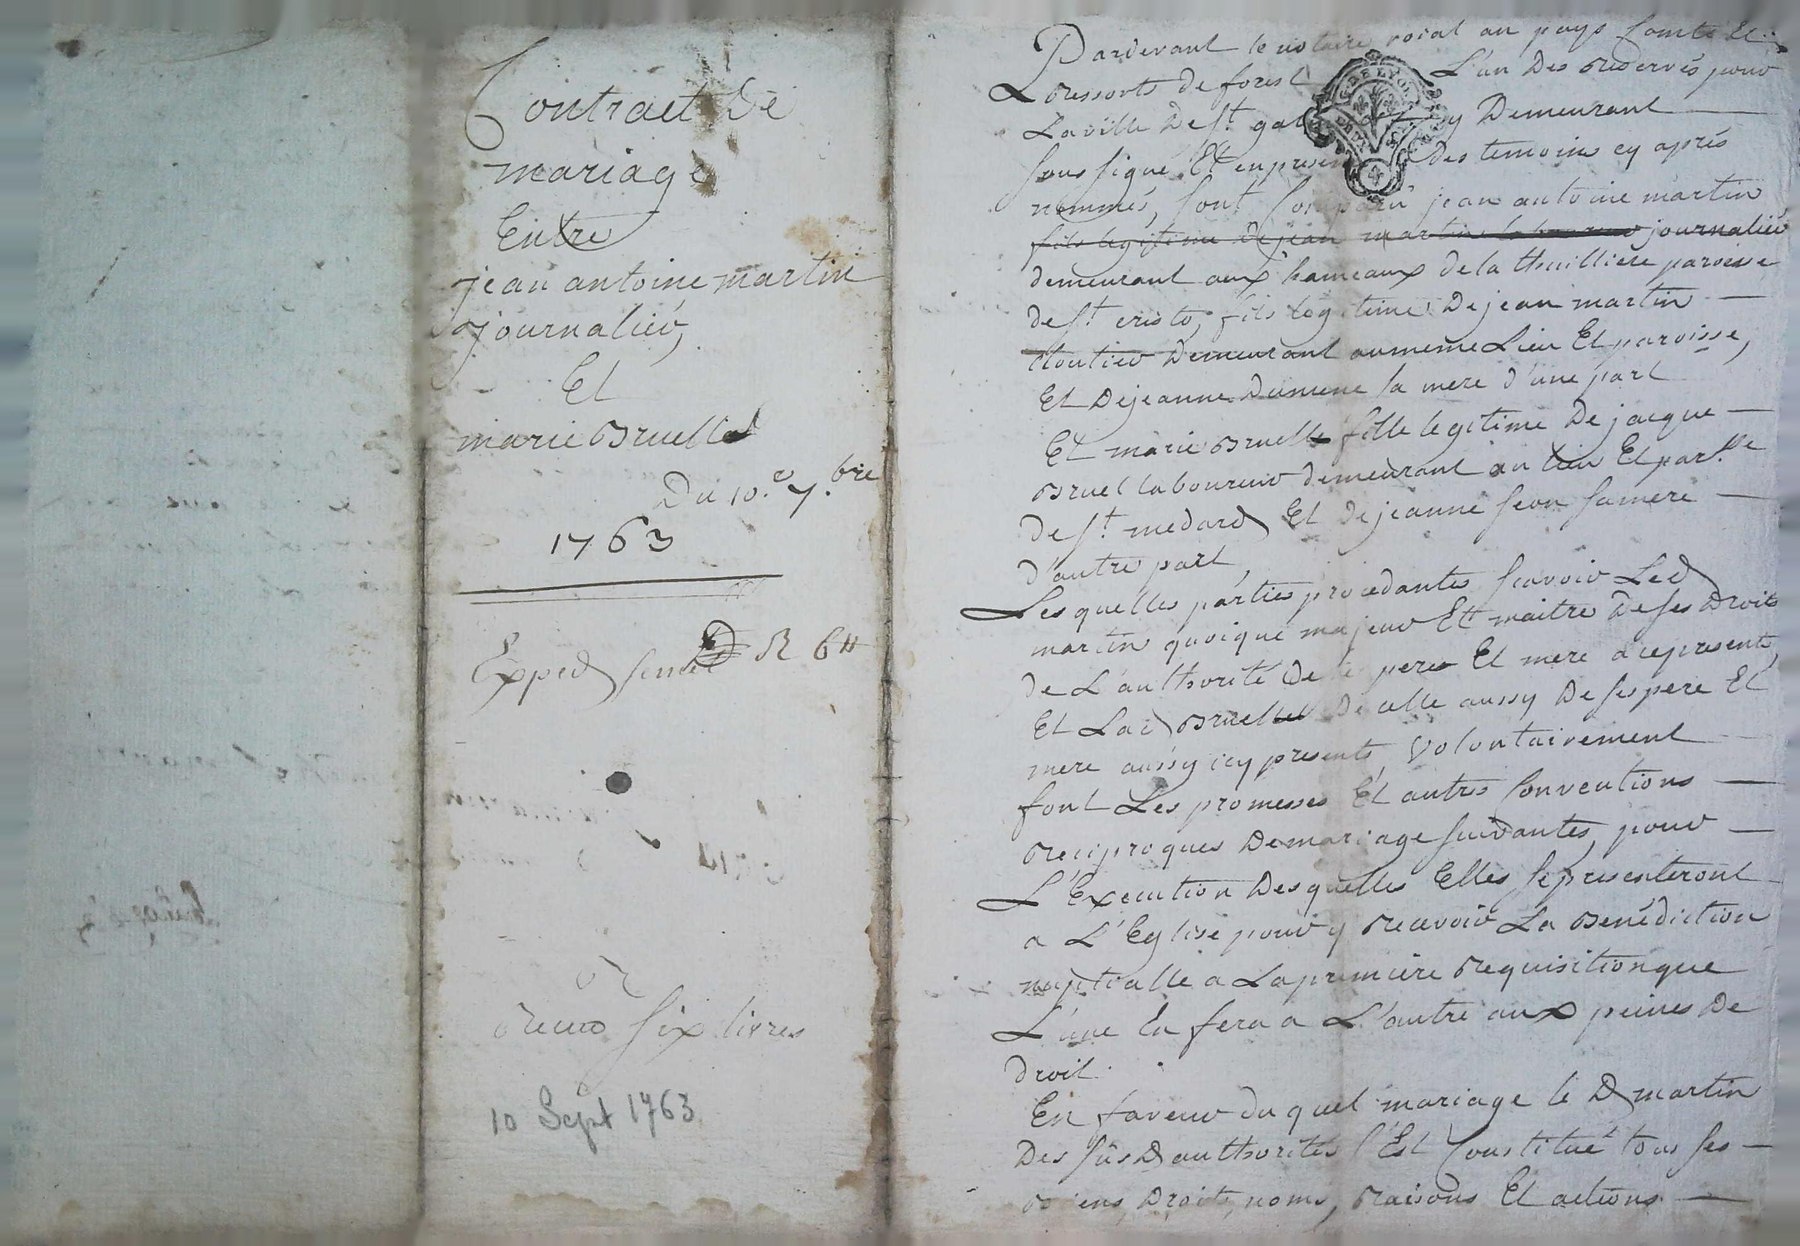 Contract De
mariage
Entre
jean antoine martin
journalier,
Et
marie Bruelle
Du 10.e 7.bre
1763
Exped R 6#
Recu six livres
10 Sept 1763
Pardevant le notaire roial au pays Comté Et
Ressorts de forest L'un Des Reservés pour
La ville De St. gal y Demeurant
soussigné Et en presen des temoins cy après
nommés, sont Comparû jean antoine martin
fils legitime De jean martin laboureur journalier
demeurant aux hameaux de la thuilliere paroisse
de St. cristo, fils legitime De jean martin
Cloutier Demeurant au meme Lieu Et paroisse,
Et De jeanne Dumene sa mere d'une part
Et marie Bruelle fille legitime De jacque
Bruel laboureur demeurant au lieu Et par.sse
De St. medard Et De jeanne seon sa mere
d'autre part,
Les quelles parties procedantes sçavoir Led
martin quoique majeur Et maitre De ses Droits
de L'authorité De pere Et mere a ce presents,
Et Lad Bruelle De celle aussy De ses pere Et
mere aussy icy presents, Volontairement
font Les promesses Et autres Conventions
Reciproques De mariage suivantes, pour
L'Execution Desquelles Elles se presenteront
a L'Eglise pour y Recevoir La Benédiction
nuptialle a La premiere Requisition que
L'une En fera a L'autre aux peines De
droit.
En faveur du quel mariage le D martin
Des susd authorités s'Est Constitué tous ses
Biens, Droits, noms, Raisons Et actions